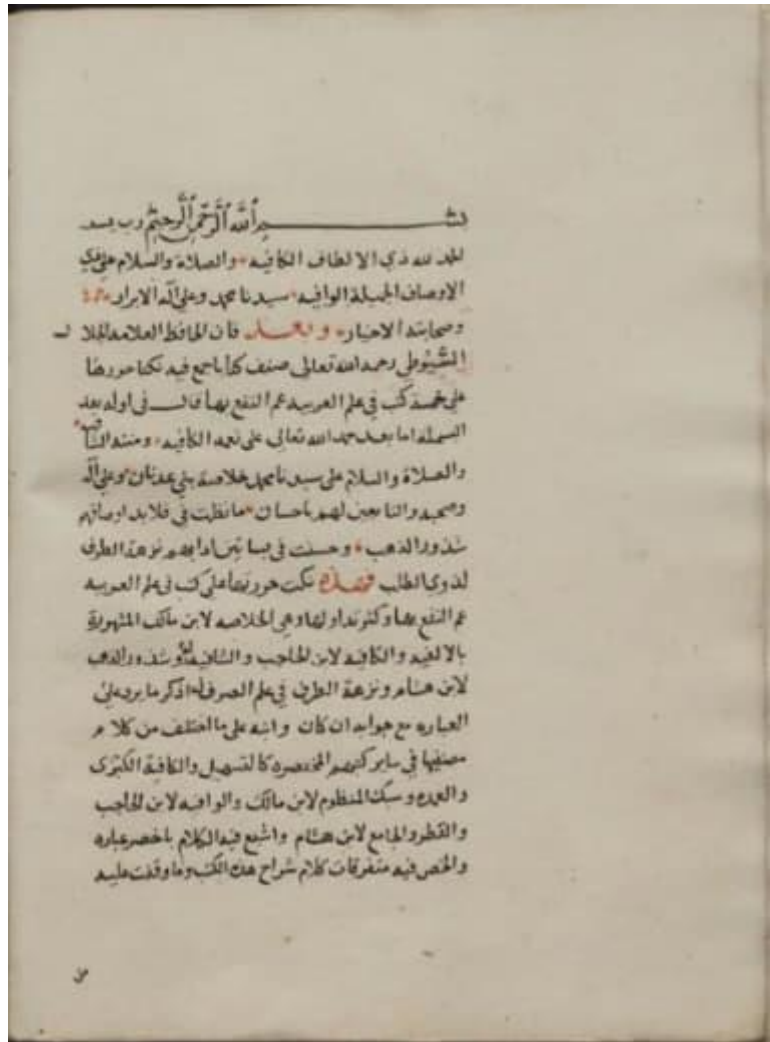 بسم الله الرحمن الرحيم رب يسر
الحمد لله ذي الالطاف الكافيه والصلاة والسلام على ذي
الاوصاف الجميلة الوافيه سيدنا محمد وعلى آله الابرار
وصحابته الاخيار وبعد فان الحافظ العلامة الجلال
السيوطي رحمه الله تعالى صنف كتابا جمع فيه نكتا حررها
على خمسة كتب في علم العربيه عم النفع بها قال في اوله بعد
البسملة اما بعد حمد الله تعالى على نعمه الكافيه ومننه
والصلاة والسلام على سيدنا محمد خلاصة بني عدنان وعلى آله
وصحبه والتابعين لهم باحسان ما نظمت في قلايد اوصافهم
شذور الذهب وحسنت في بساتين ادابهم نزهة الطرف
لذوي الطلب فهذه نكت حررتها على كتب في علم العربيه
عم النفع بها وكثر تداولها وهي الخلاصه لابن مالك المشهورة
بالالفيه والكافيه لابن الحاجب والشافيه له وشذور الذهب
لابن هشام ونزهة الطرف في علم الصرف له اذكر ما يرد على
العباره مع جوابه ان كان وانبه على ما اختلف من كلام
مصنفيها في ساير كتبهم المختصره كالتسهيل والكافية الكبرى
والعمده وسبك المنظوم لابن مالك والوافيه لابن الحاجب
والقطر والجامع لابن هشام واشبع فيه الكلام باخصر عباره
والخص فيه متفرقات كلام شراح هذه الكتب وما وقفت عليه